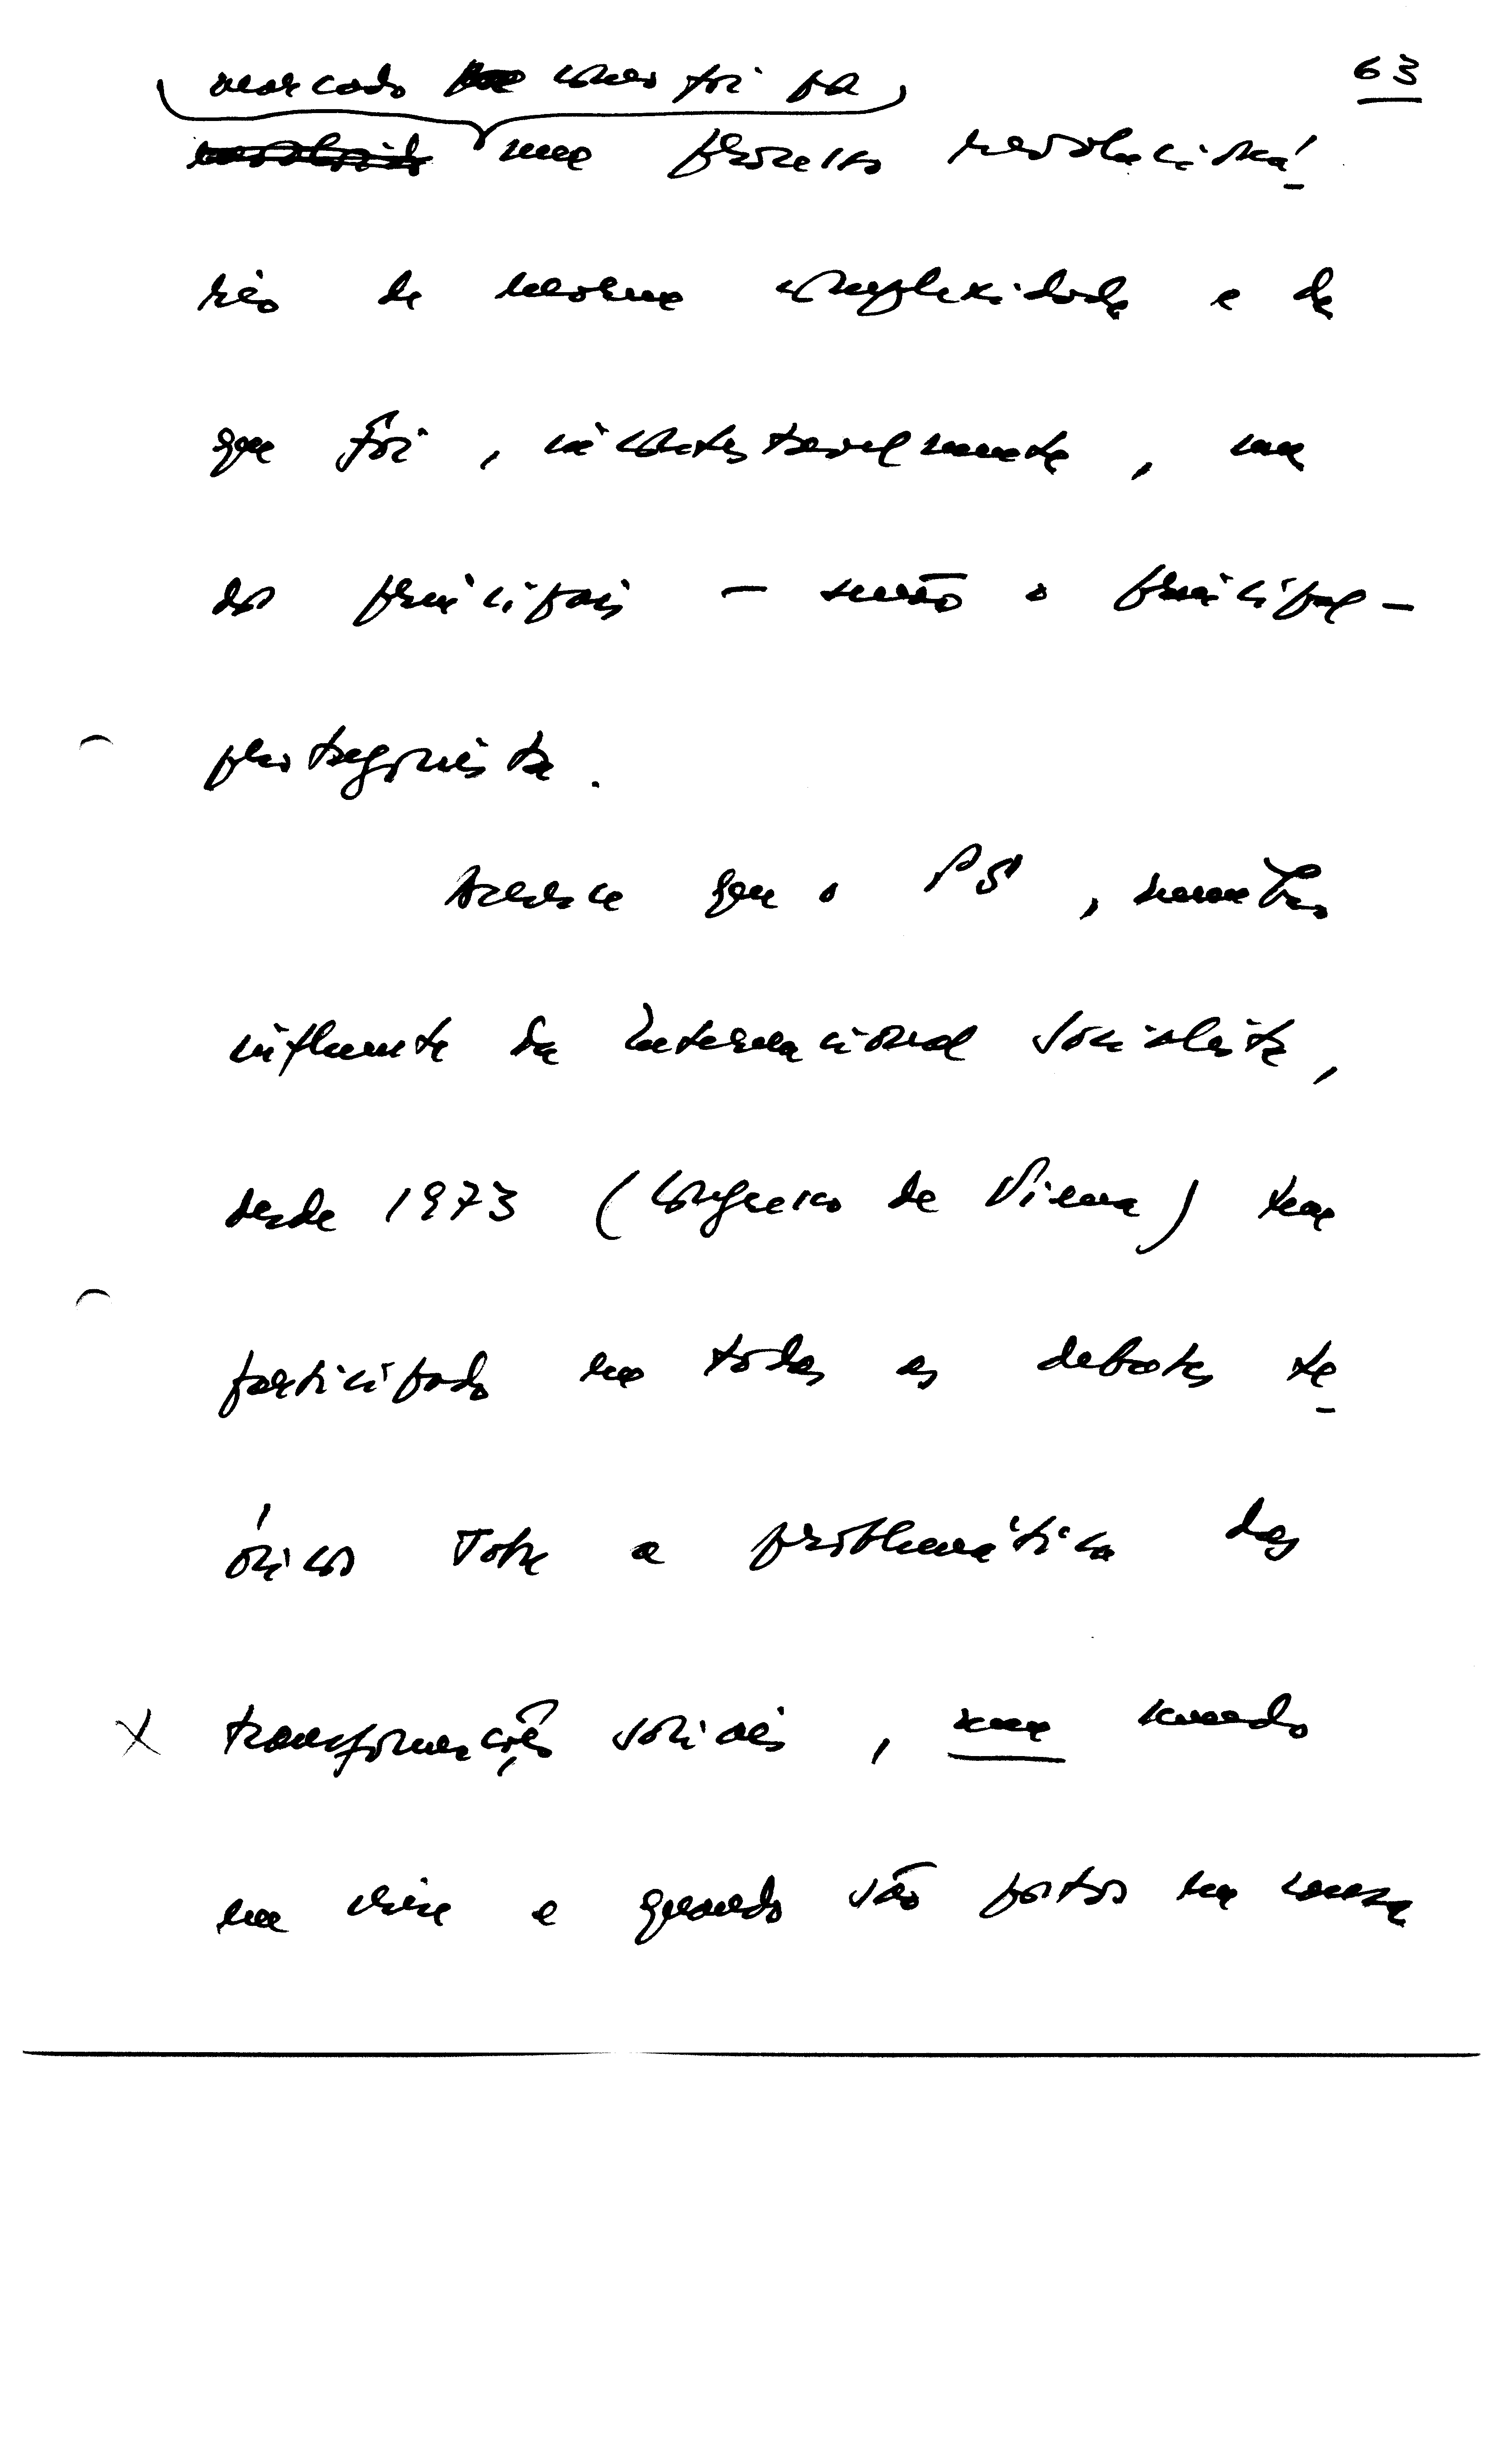 63
marcado como foi por
um processo revolucioná-
rio de enorme complexidade e de
que foi, incontestavelmente, um
dos principais - senão o principal -
protagonista.
Acresce que o PS, membro
influente da Internacional Socialista,
desde 1973 (Congresso de Viena) tem
participado em todos os debates te-
óricos sobre a problemática das
transformações sociais, num mundo
em crise e quando são postos em causa